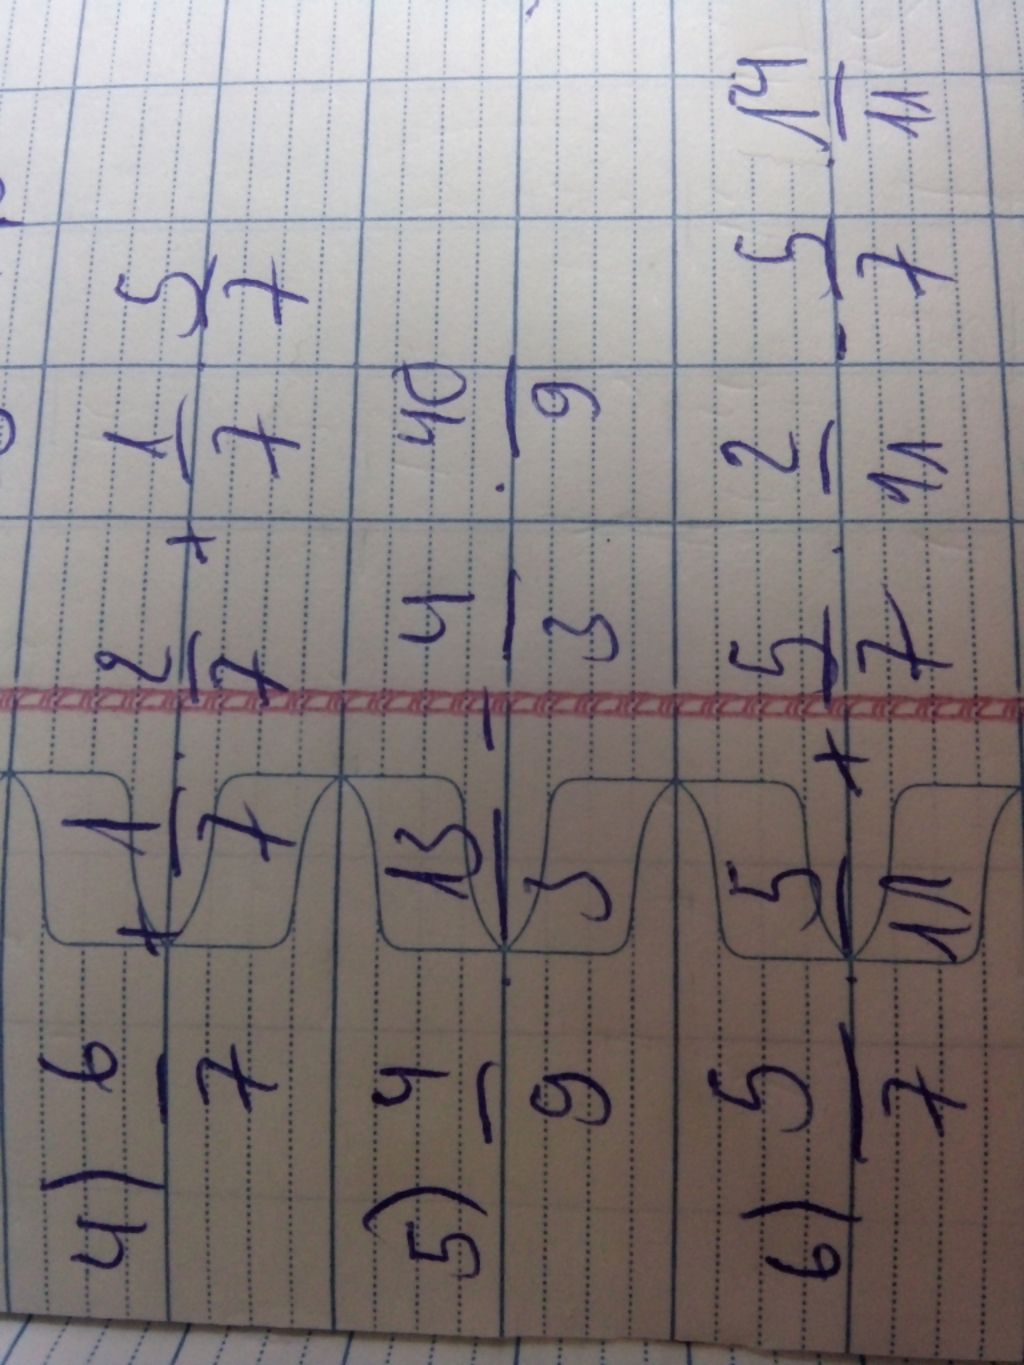 4) 6/7 + 1/7 · 2/7 + 1/7 · 5/7
5) 4/9 · 13/3 - 4/3 · 40/9
6) 5/7 · 5/11 + 5/7 · 2/11 - 5/7 · 14/11